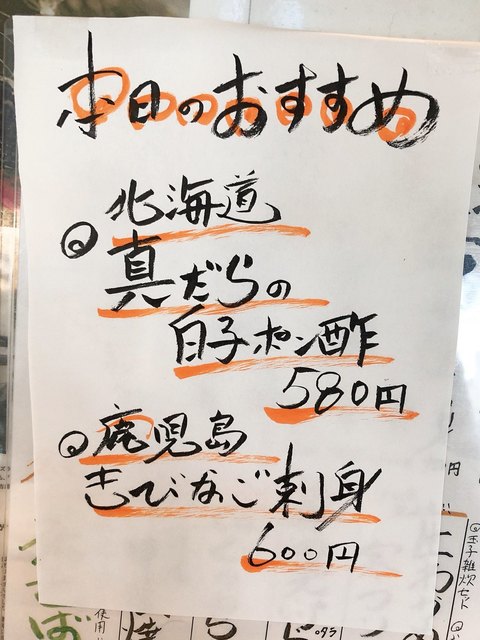 本日のおすすめ
◎北海道
真だらの
白子ポン酢
580円
◎鹿児島
きびなご刺身
600円
◎玉子雑炊セット